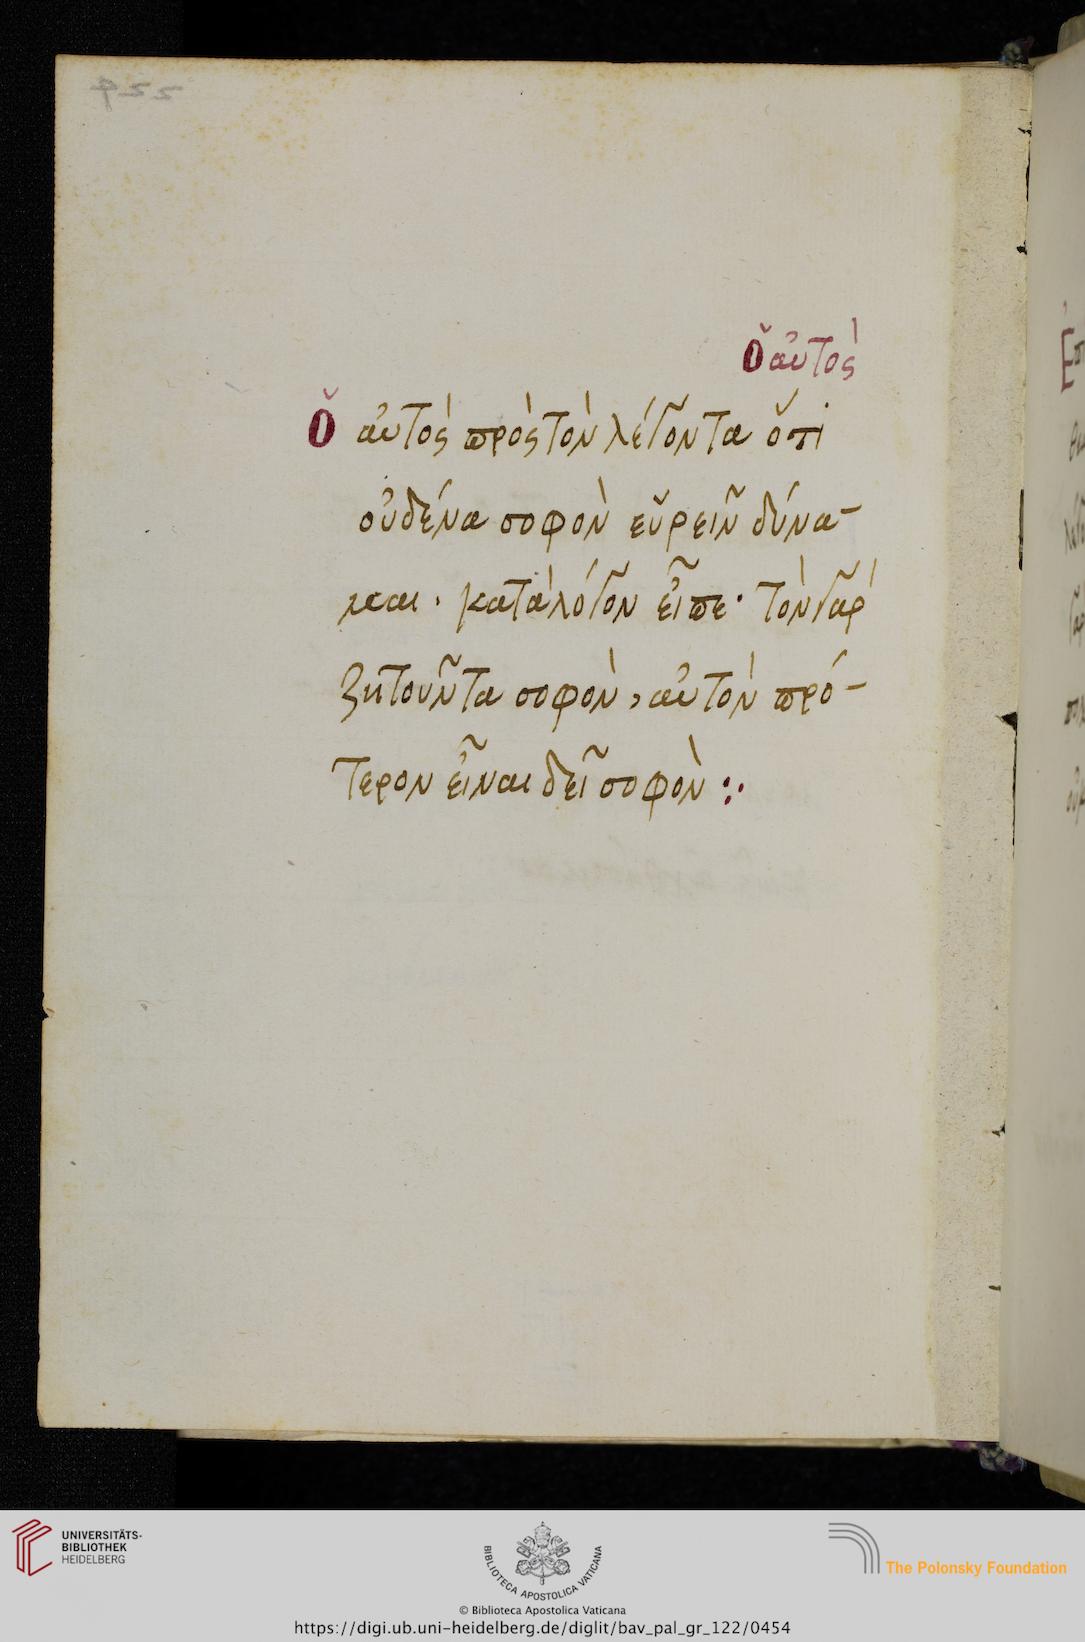 229
Ὁ αὐτὸς
Ὁ αὐτὸς πρὸς τὸν λέγοντα ὅτι
οὐδένα σοφὸν εὑρεῖν δύνα-
μαι· κατὰ λόγον εἶπε· τὸν γὰρ
ζητοῦντα σοφὸν, αὐτὸν πρό-
τερον εἶναι δεῖ σοφὸν :·
UNIVERSITÄTS-
BIBLIOTHEK
HEIDELBERG
BIBLIOTECA APOSTOLICA VATICANA
The Polonsky Foundation
© Biblioteca Apostolica Vaticana
https://digi.ub.uni-heidelberg.de/diglit/bav_pal_gr_122/0454